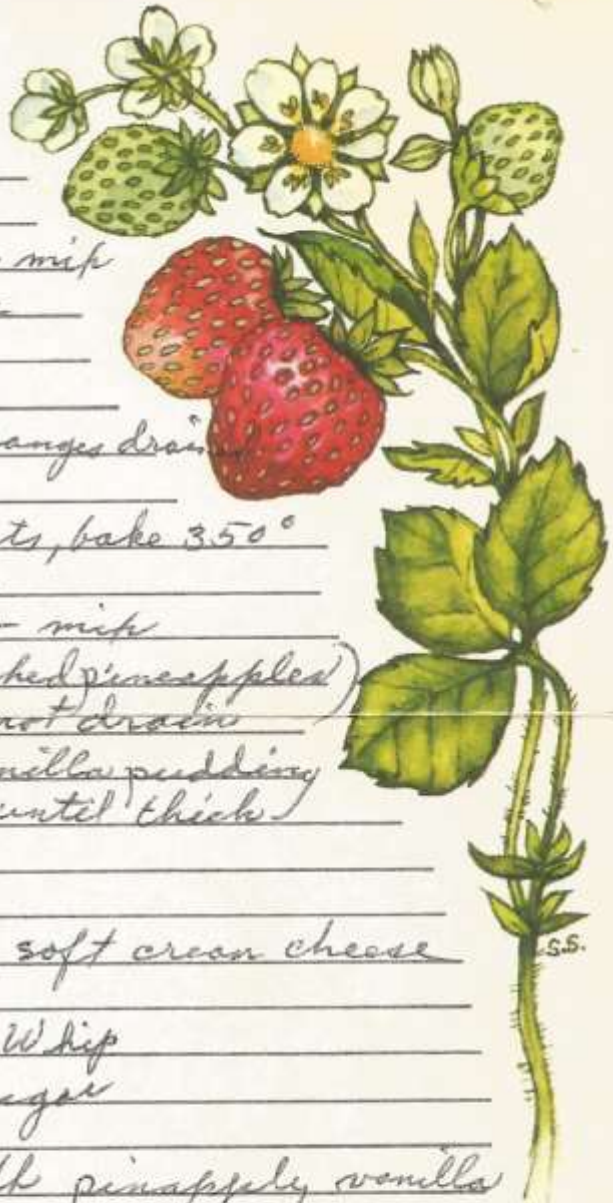 mix
anges drain
ts, bake 350°
mix
hed pineapples)
not drain
nilla pudding
until thick
soft crean cheese
Whip
ugar
th pinapply vanilla
S.S.